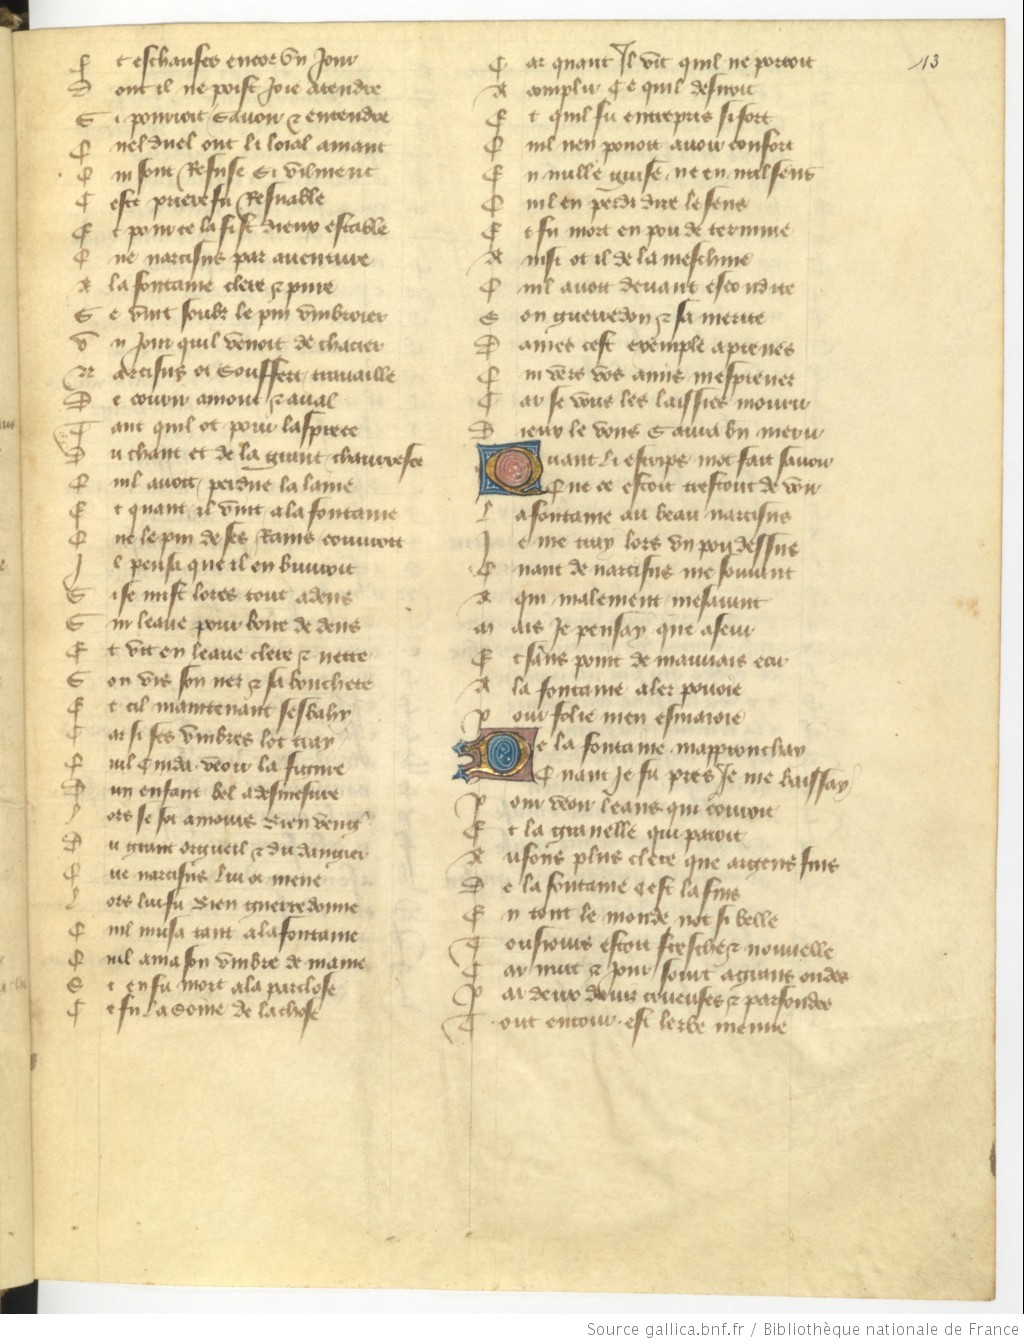 E t eschaufes encor vn Jour
D ont il ne poist Joie atendre
S i pourroit sauoir & entendre
Q uel duel ont li loial amant
Q ui sont Refuse si vilment
C este priere fu Resnable
E t pour ce la fist dieux estable
Q ue narcisus par auenture
A la fontaine clere & pure
S e vint soubz le pin vmbroier
V n Jour quil venoit de chacier
N arcisus ot souffert trauaille
D e courir amont & aual
T ant quil ot pour lasprece
D u chaut et de la grant chauuresce
Q uil auoit perdue la laine
E t quant il vint a la fontaine
Q ue le pin de ses Rains couuroit
I l pensa que il en buuroit
S i se mist lores tout adens
S ur leaue pour boire de dens
E t vit en leaue clere & nette
S on vis son nez & sa bouchete
E t cil maintenant sesbahy
C ar si ses vmbres lot tray
Q uil Cuida veoir la figure
D un enfant bel a desmesure
L ors se sot amours bien veng'
D u grant orgueil & du dangier
Q ue narcisus lui ot mene
L ors lui fu bien guerredonne
Q uil musa tant a la fontaine
Q uil ama son vmbre demaine
E t en fu mort a la parclose
C e fu la some de la chose
C ar quant Il vit quil ne porroit
A complir Ce quil desiroit
E t quil fu entrepris si fort
Q uil nen pouoit auoir confort
E n nulle guise ne en nul sens
Q uil en perdi dire le sens
E t fu mort en pou de termine
A insi ot il de la meschine
Q uil auoit deuant escondite
S on guerredon & sa merite
D ames cest exemple aprenes
Q ui vers vos amis mesprenez
C ar se vous les laissies mourir
D ieux le vous saura bn merir
Quant li escrips mot fait sauoir
Que ce estoit trestout de voir
L a fontaine au beau narcisus
I e me tray lors vn pou dessus
Q uant de narcisus me souuint
A qui malement mesauint
M ais Je pensay que aseur
E t sans point de mauuais eur
A la fontaine aler pouoie
P our folie men esmaioie
De la fontaine mapprouchay
Quant Je fu pres Je me baissay
P our veoir leaue qui couroit
E t la grauelle qui paroit
A u fons plus clere que argens fins
D e la fontaine cest la fins
E n tout le monde not si belle
T ousiours estoit fresche & nouuelle
C ar nuit & jour sourt a grans ondes
P ar deux doiz creuses & parfondes
T out entour est lerbe menue
13
Source gallica.bnf.fr / Bibliothèque nationale de France